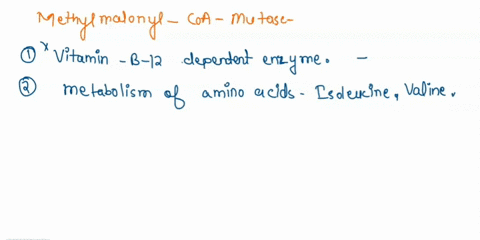 Methylmalonyl - CoA - Mutase-
① * Vitamin - B-12 dependent enzyme. -
② metabolism of amino acids - Isoleucine, Valine.